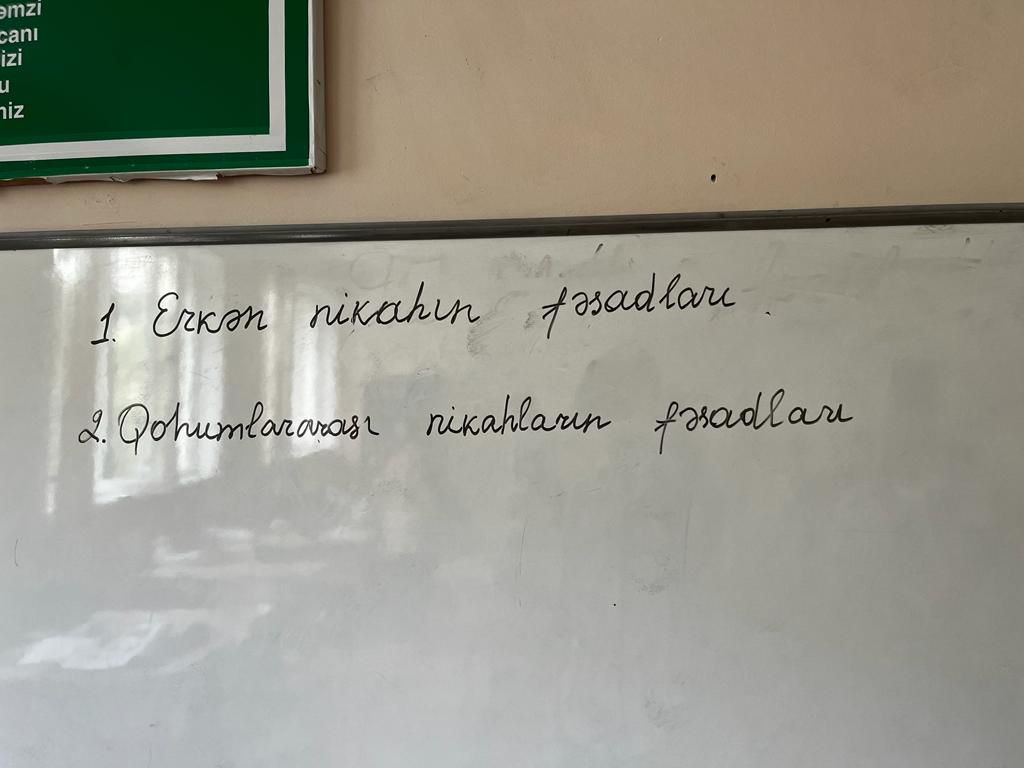 əmzi
canı
izi
u
niz
1. Erkən nikahın fəsadları.
2. Qohumlararası nikahların fəsadları